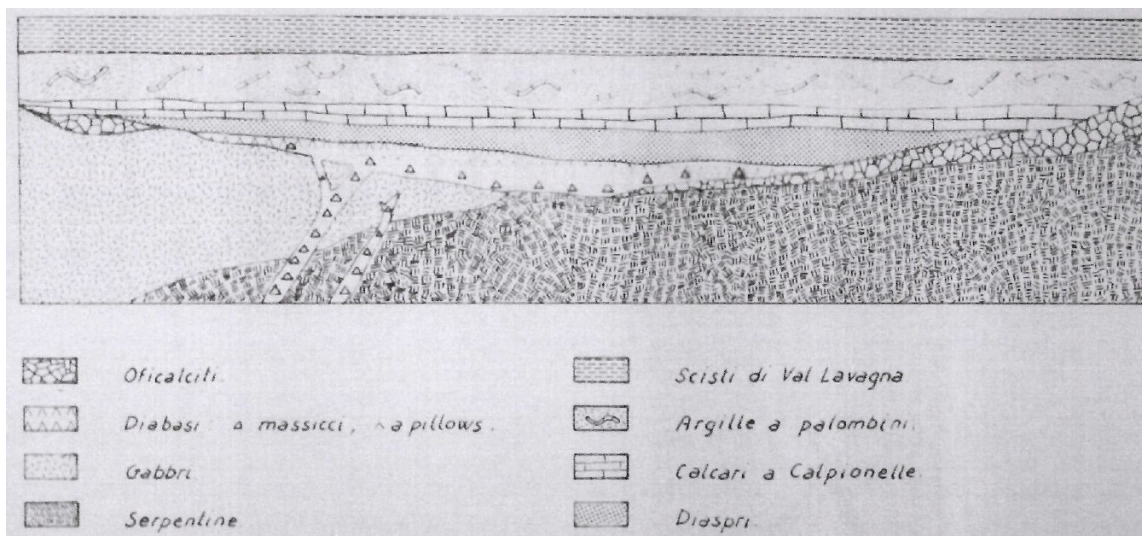 Oficalciti.
Diabasi: ▵ massicci, ^ a pillows.
Gabbri
Serpentine
Scisti di Val Lavagna
Argille a palombini.
Calcari a Calpionelle.
Diaspri.